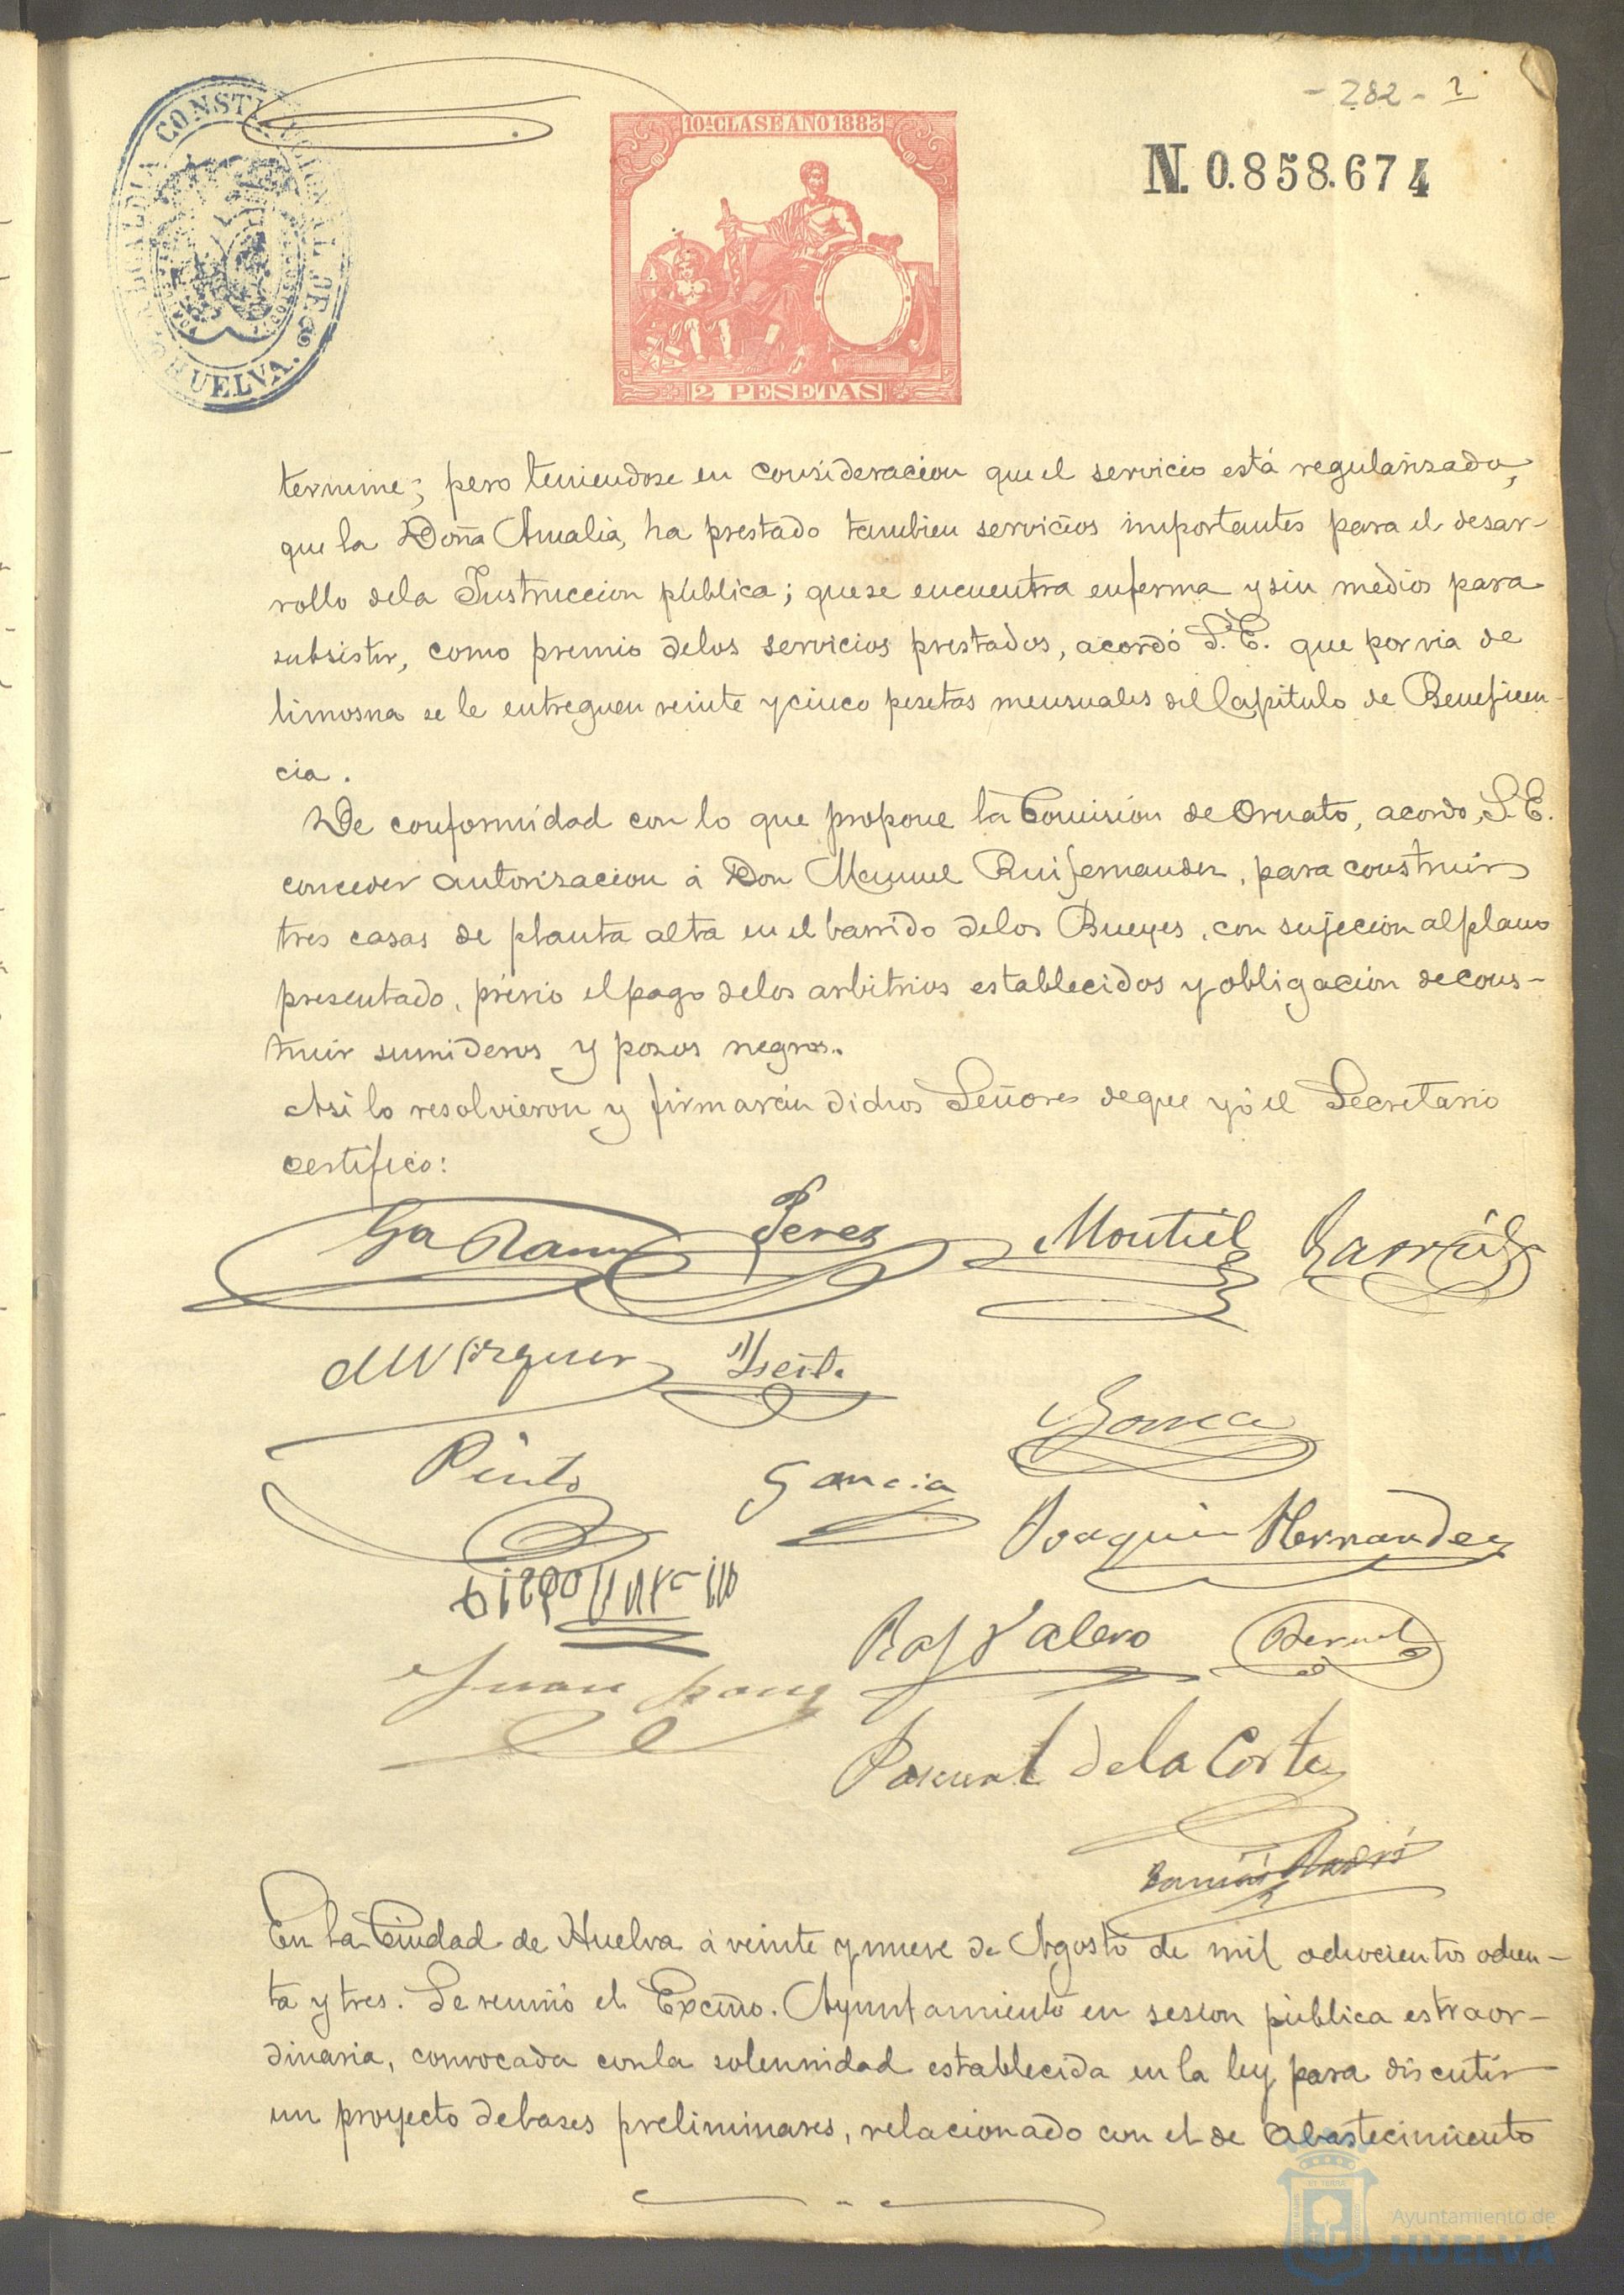 - 282 - 2
ALCALDIA CONSTITUCIONAL DE HUELVA.
10ª CLASE AÑO 1883
N. 0.858.674
2 PESETAS
termine; pero teniendose en consideracion que el servicio está regularizado,
que la Doña Amalia, ha prestado tambien servicios importantes para el desar-
rollo dela Instruccion pública; quese encuentra enferma y sin medios para
subsistir, como premio delos servicios prestados, acordó S.E. que por via de
limosna se le entreguen veinte y cinco pesetas mensuales del Capitulo de Beneficen-
cia.
De conformidad con lo que propone la Comision de Ornato, acordo, S.E.
conceder autorizacion á Don Manuel Ruifernandez, para construir
tres casas de planta alta en el barrido delos Bueyes, con sujecion al plano
presentado, prévio el pago delos arbitrios establecidos y obligacion de cons-
truir sumideros y pozos negros.
Asi lo resolvieron y firmarán dichos Señores deque yó el Secretario
certifico:
Perez Montiel Garcia
Pinto Garcia
Joaquin Hernandez
Raf Valero Bernal
Juan
Pascual dela Corte
En la Ciudad de Huelva á veinte y nueve de Agosto de mil ochocientos ochen-
ta y tres. Se reunió el Excmo. Ayuntamiento en sesion pública estraor-
dinaria, convocada conla solemnidad establecida en la ley para discutir
un proyecto debases preliminares, relacionado con el de Abastecimiento
Ayuntamiento de
HUELVA